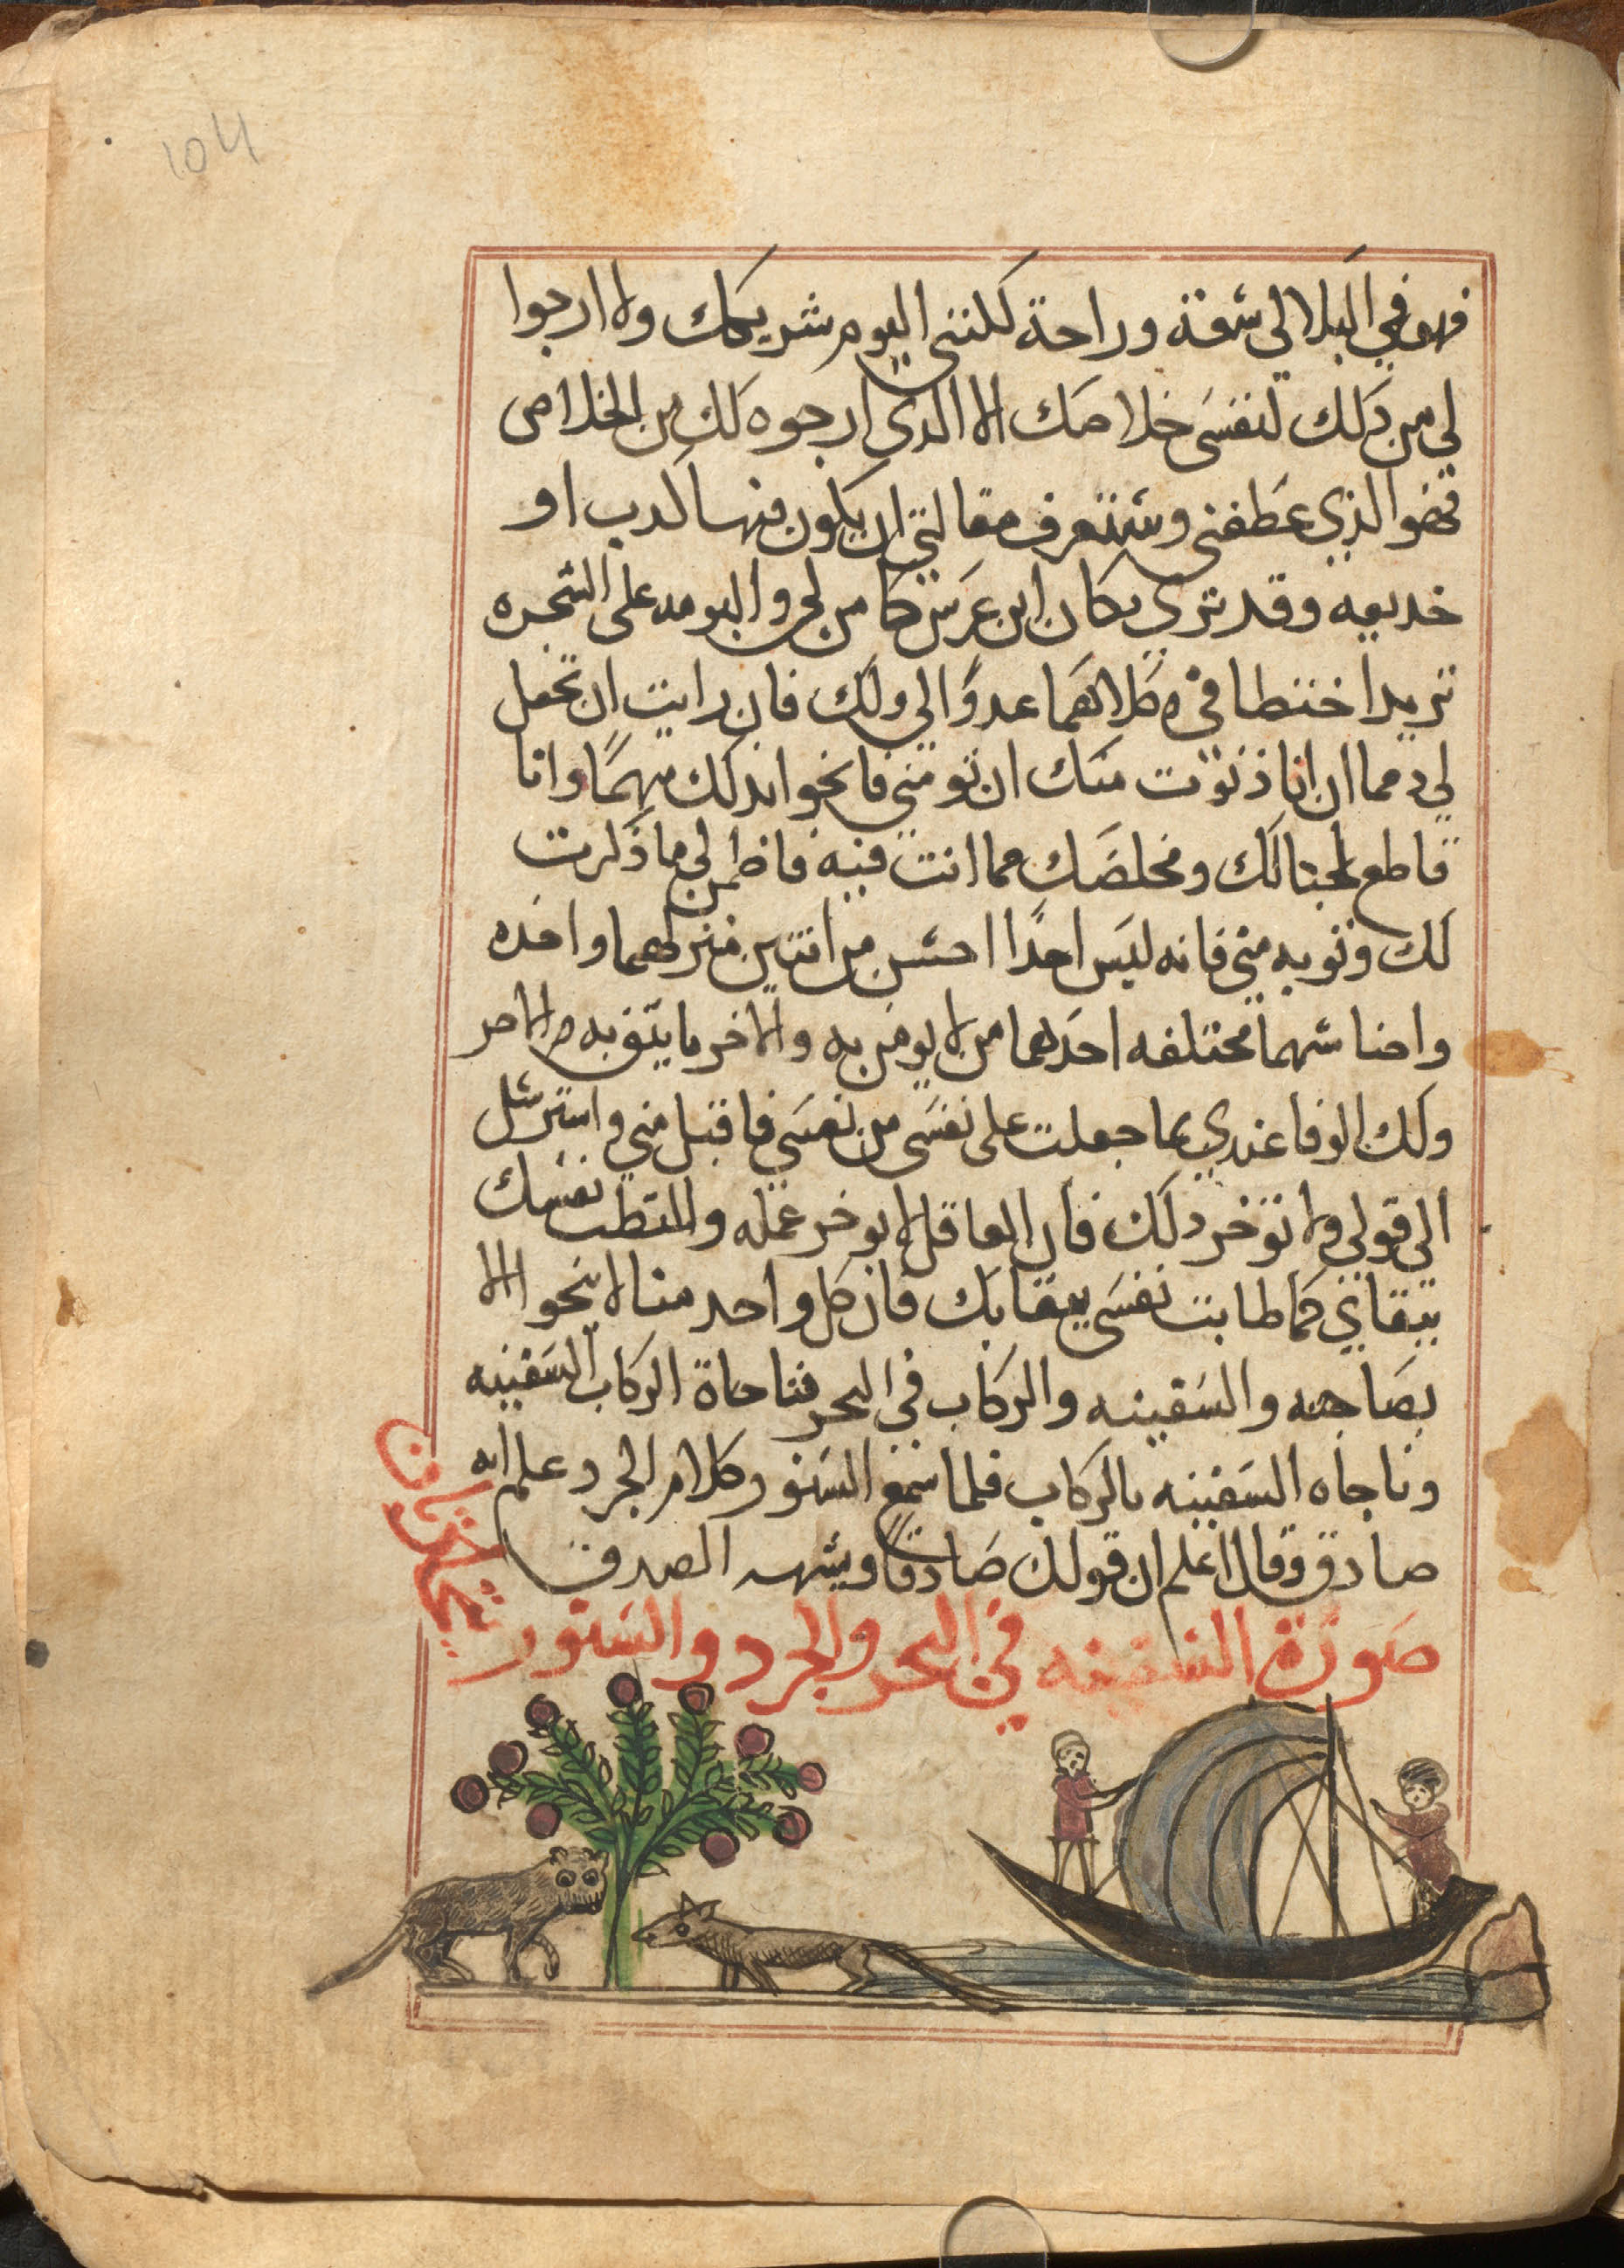 104
فهو في البلا لي شقة وراحة لكنني اليوم شريكك ولا ارجوا
لي من ذلك لنفسي خلاصك الا الدي ارجوه لك من الخلاص
فهو الذي عطفني وستعرف مقالتي ان يكون فيها كدب او
خديعه وقد تري مكان ابن عرس كامن لي والبومه على الشجره
تريد اختطافي وكلاهما عدوًا لي ولك فان رايت ان تجعل
لي دمما ان انا دنوت منك ان تومني فانجوا بدلك منهما وانا
قاطع لحبالك ومخلصك مما انت فيه فاظمن لي ما ذكرت
لك وثق به مني فانه ليس احدًا اخسر من اثنين منزلهما واحده
واحنا سهما مختلفه احدهما من لا يومن به والاخر ما يتق به الاخر
ولك الوفا عندي بما جعلت على نفسي من نفسي فاقبل مني واسترسل
الي قولي ولا توخر دلك فان العاقل لا يوخر عمله ولتطب نفسك
ببقاي كما طابت نفسي ببقايك فان كل واحد منا لا ينجو الا
بصاحبه والسفينه والركاب في البحر فنا حاة الركاب السفينه
وناجاه السفينه بالركاب فلما سمع السنور كلام الجرد علم انه
صادق وقال اعلم ان قولك صادقًا ويشبه الصدق
صورة السفينه في البحر والجرد والسنور
يتحادثان